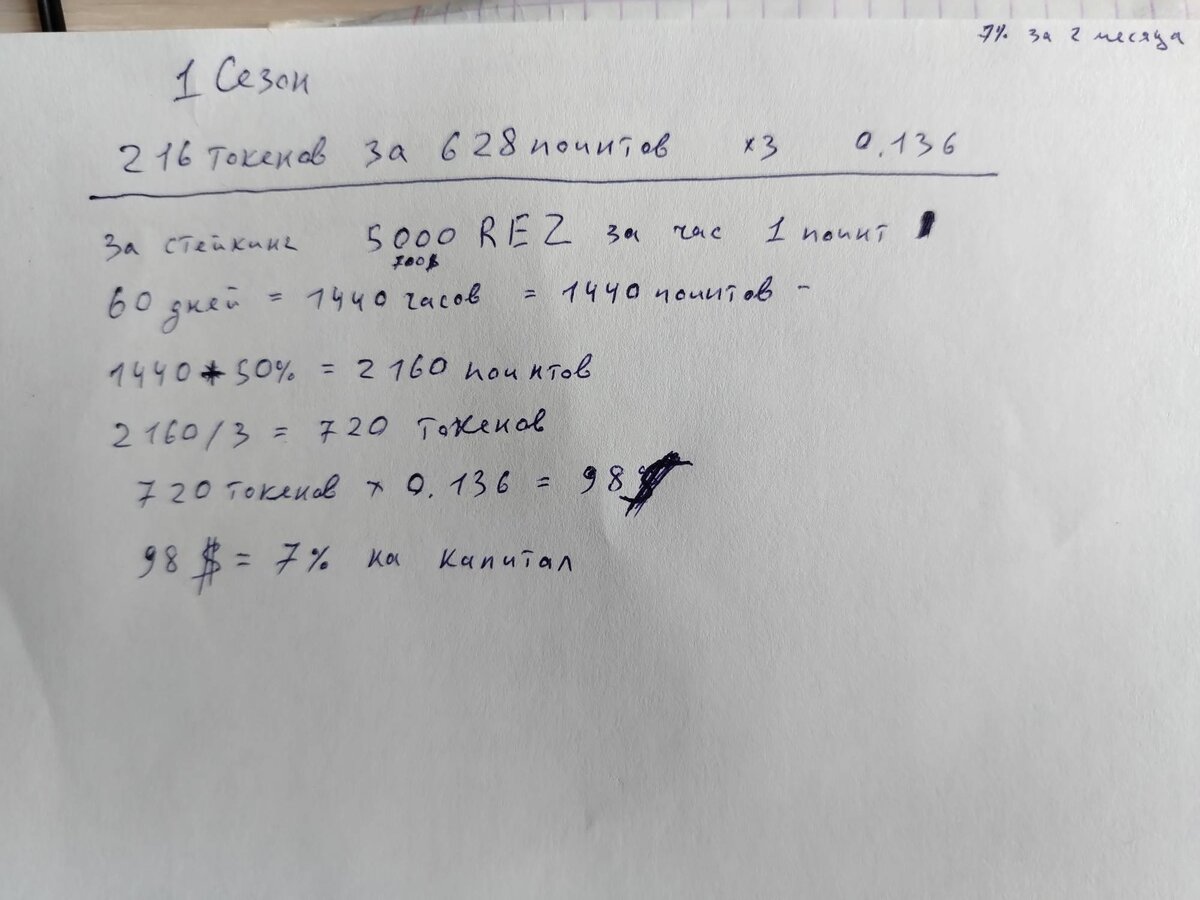 7% за 2 месяца
1 Сезон
216 токенов за 628 поинтов ×3 0.136
За стейкинг 5000 REZ за час 1 поинт
700$
60 дней = 1440 часов = 1440 поинтов -
1440 + 50% = 2160 поинтов
2160/3 = 720 токенов
720 токенов × 0.136 = 98
98 $ = 7% на капитал